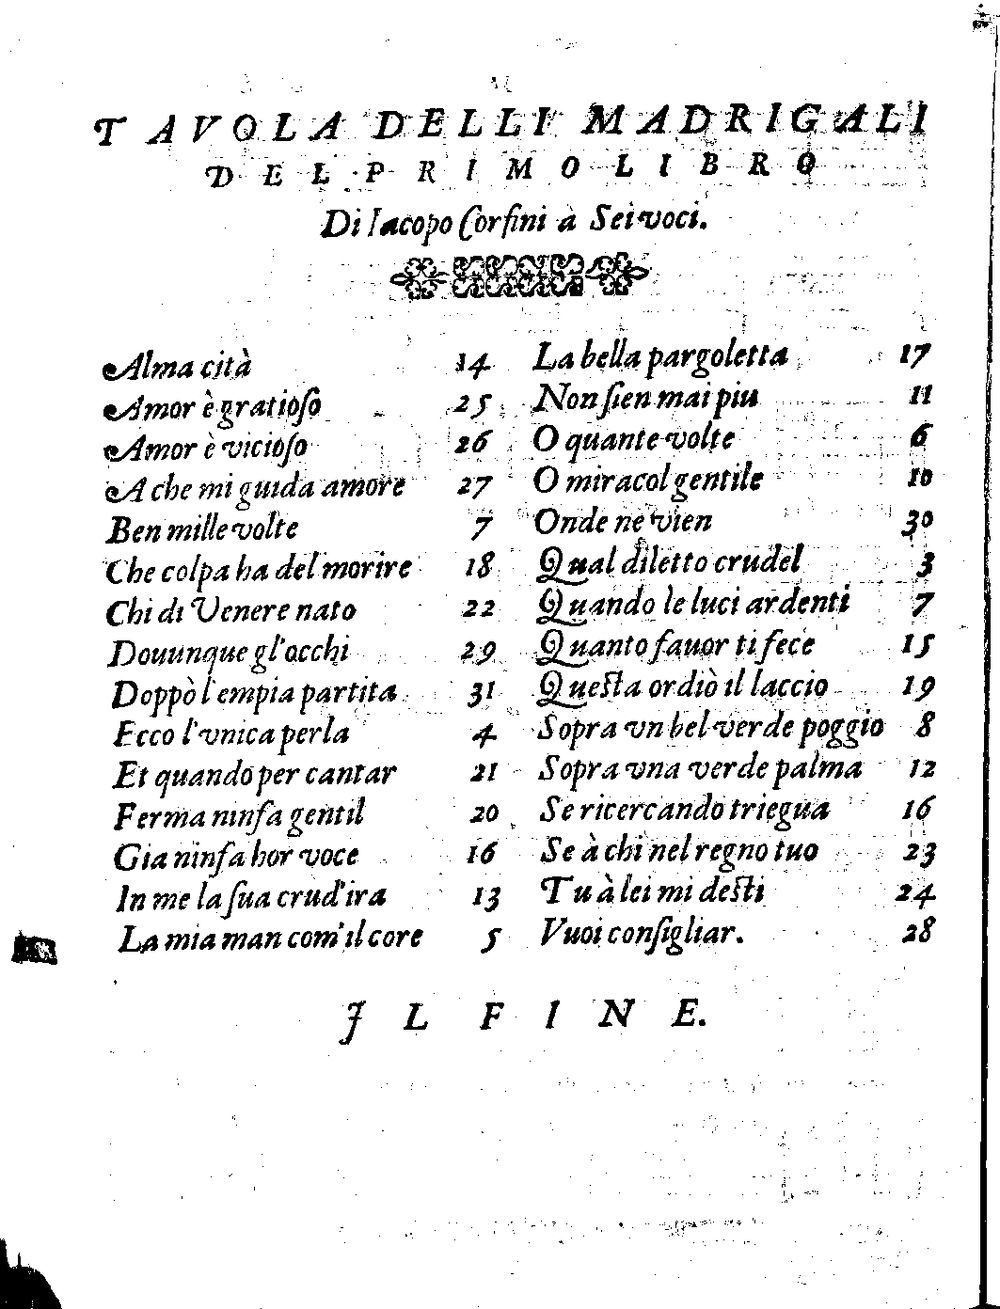 TAVOLA DELLI MADRIGALI
DEL PRIMO LIBRO
Di Iacopo Corfini à Sei voci.
Alma cità 14
Amor è gratioſo 25
Amor è vicioſo 26
A che mi guida amore 27
Ben mille volte 7
Che colpa ha del morire 18
Chi di Venere nato 22
Douunque gl'occhi 29
Doppò l'empia partita 31
Ecco l'vnica perla 4
Et quando per cantar 21
Ferma ninfa gentil 20
Gia ninfa hor voce 16
In me la ſua crud'ira 13
La mia man com'il core 5
La bella pargoletta 17
Non ſien mai piu 11
O quante volte 6
O miracol gentile 10
Onde ne vien 30
Qual diletto crudel 3
Quando le luci ardenti 7
Quanto fauor ti fece 15
Queſta ordiò il laccio 19
Sopra vn bel verde poggio 8
Sopra vna verde palma 12
Se ricercando triegua 16
Se à chi nel regno tuo 23
Tu à lei mi deſti 24
Vuoi conſigliar. 28
IL FINE.